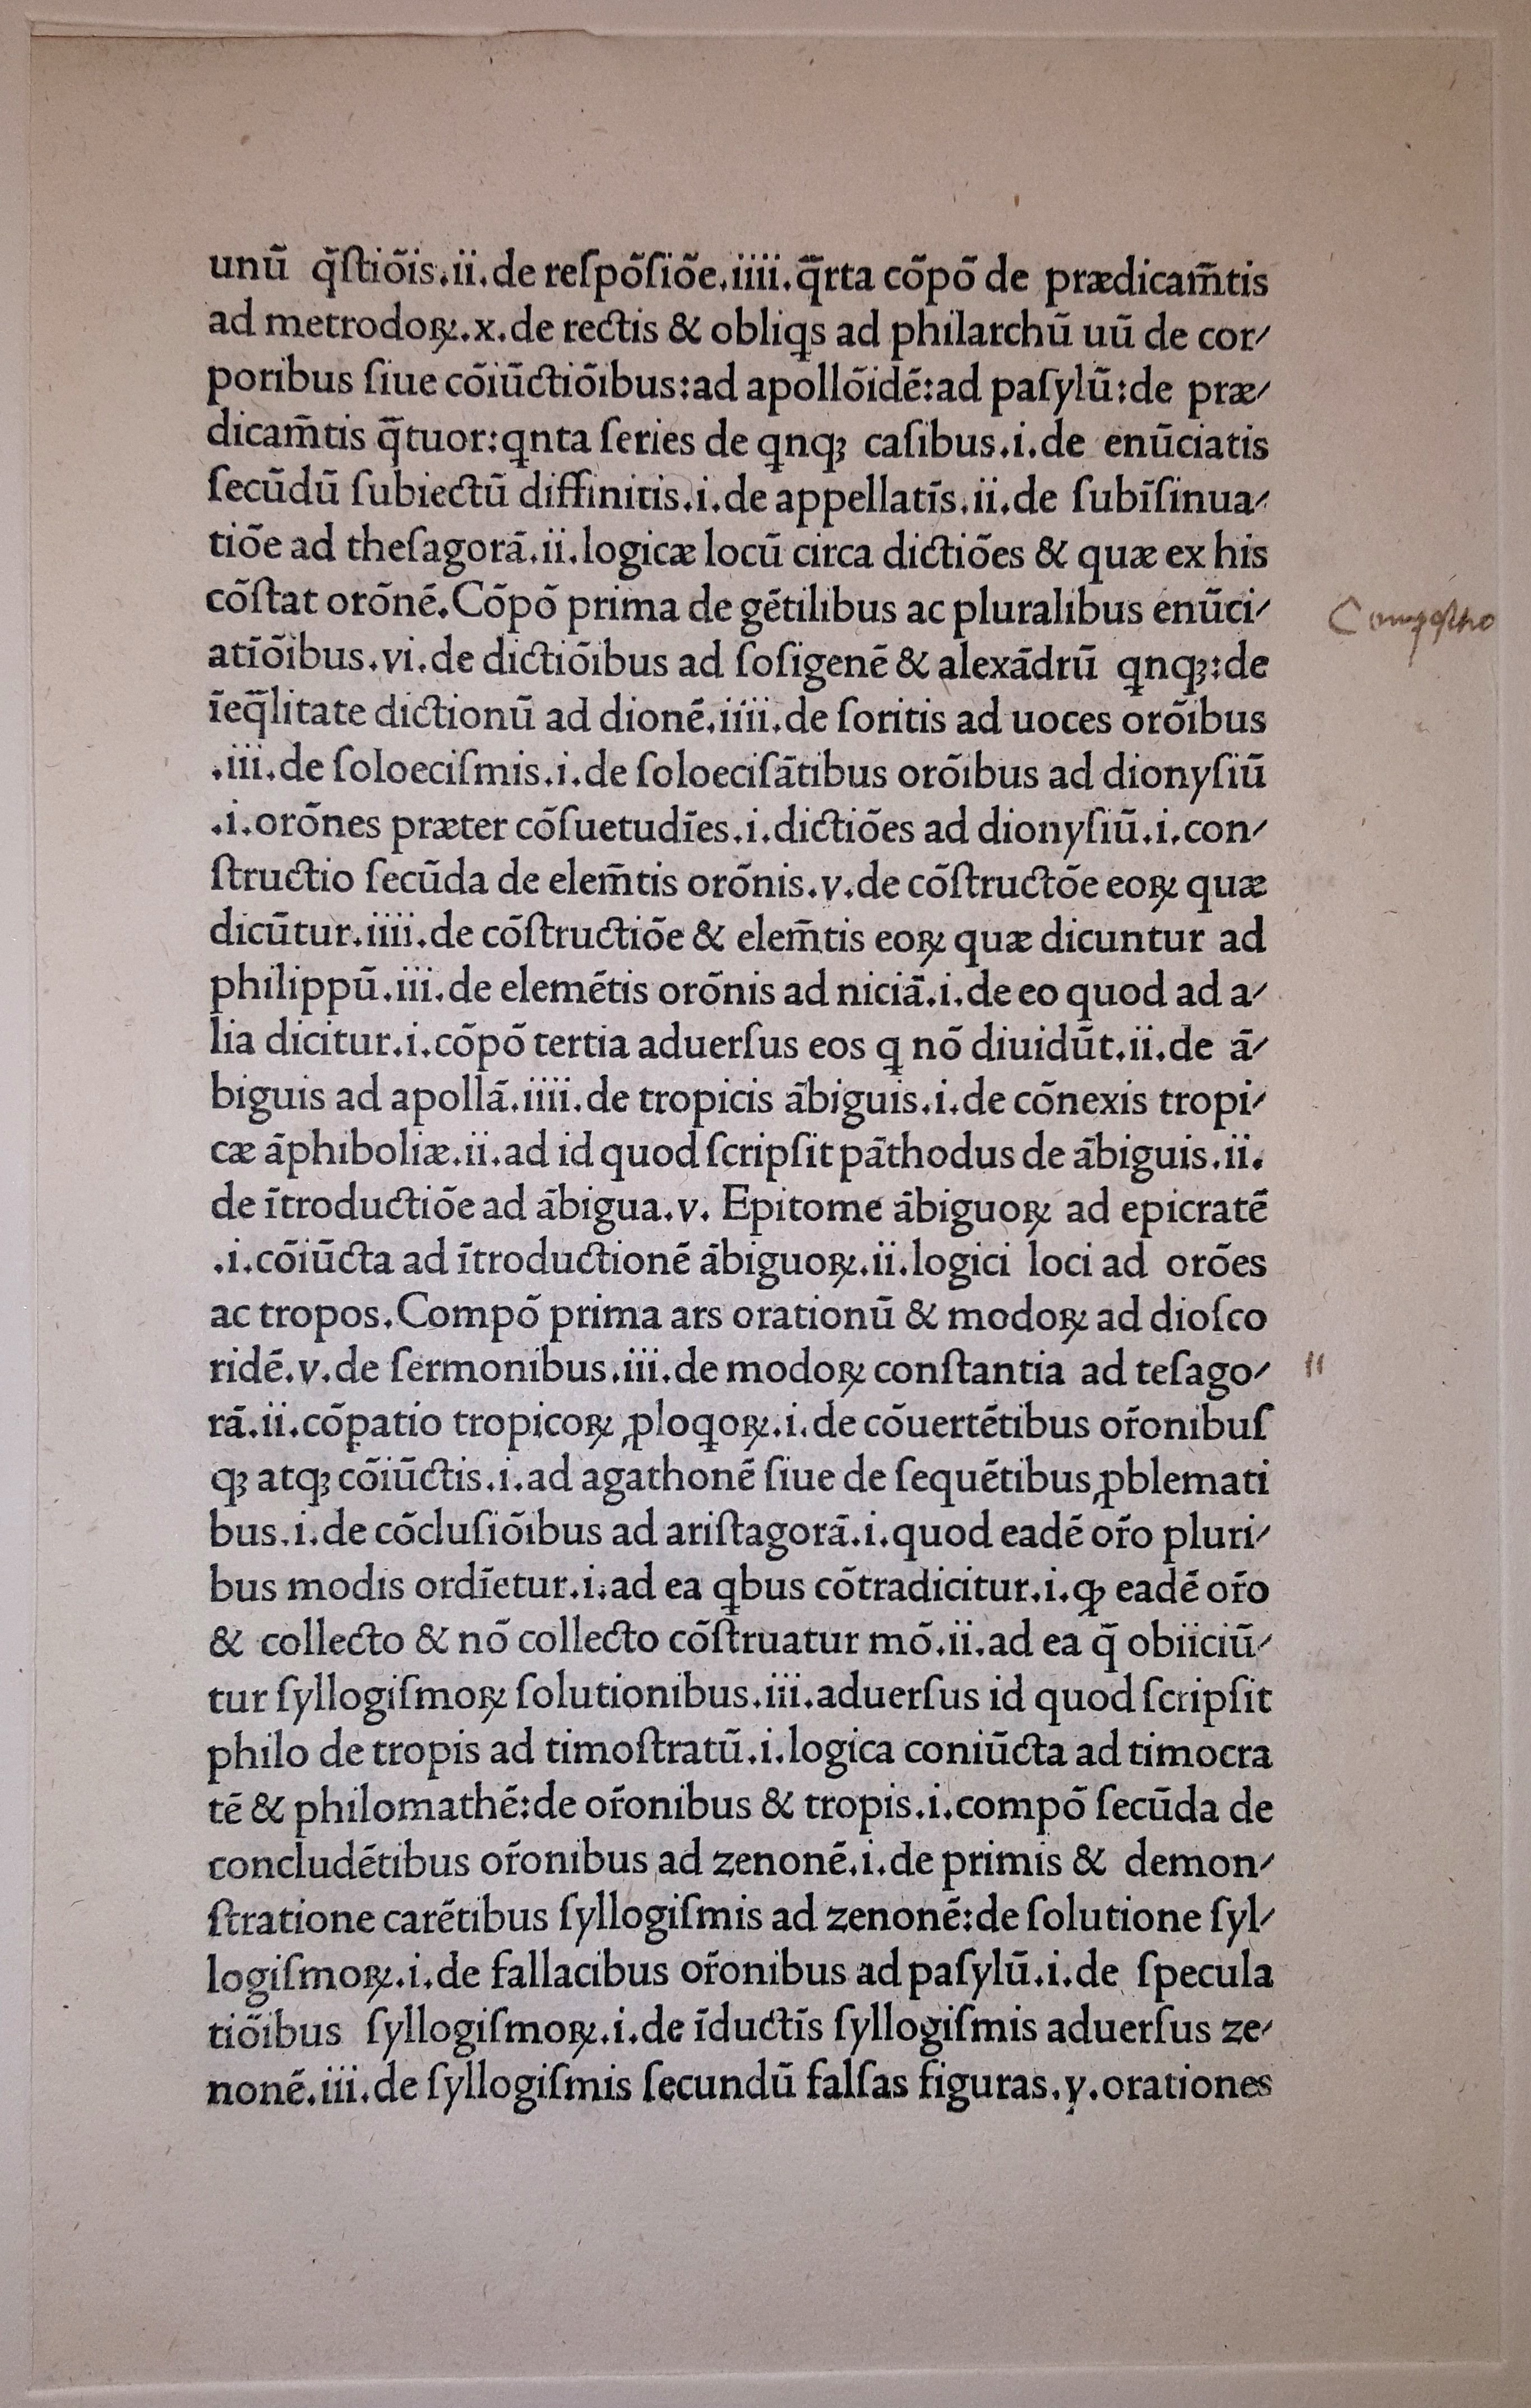 unũ q̃ſtiõis.ii.de reſpõſiõe.iiii.q̃rta cõpõ de prædicam̃tis
ad metrodoꝝ.x.de rectis & obliqs ad philarchũ uũ de cor⸗
poribus ſiue cõiũctiõibus:ad apollõidẽ:ad paſylũ:de præ⸗
dicam̃tis q̃tuor:qnta ſeries de qnqꝫ caſibus.i.de enũciatis
ſecũdũ ſubiectũ diffinitis.i.de appellatĩs.ii.de ſubĩſinua⸗
tiõe ad theſagorã.ii.logicæ locũ circa dictiões & quæ ex his
cõſtat orõnẽ.Cõpõ prima de gẽtilibus ac pluralibus enũci⸗
Compositio
atĩõibus.vi.de dictiõibus ad ſoſigenẽ & alexãdrũ qnqꝫ:de
ĩeq̃litate dictionũ ad dionẽ.iiii.de ſoritis ad uoces orõibus
.iii.de ſoloeciſmis.i.de ſoloeciſãtibus orõibus ad dionyſiũ
.i.orõnes præter cõſuetudĩes.i.dictiões ad dionyſiũ.i.con⸗
ſtructio ſecũda de elem̃tis orõnis.v.de cõſtructõe eoꝝ quæ
dicũtur.iiii.de cõſtructiõe & elem̃tis eoꝝ quæ dicuntur ad
philippũ.iii.de elemẽtis orõnis ad niciã.i.de eo quod ad a⸗
lia dicitur.i.cõpõ tertia aduerſus eos q nõ diuidũt.ii.de ã⸗
biguis ad apollã.iiii.de tropicis ãbiguis.i.de cõnexis tropi⸗
cæ ãphiboliæ.ii.ad id quod ſcripſit pãthodus de ãbiguis.ii.
de ĩtroductiõe ad ãbigua.v. Epitome ãbiguoꝝ ad epicratẽ
.i.cõiũcta ad ĩtroductionẽ ãbiguoꝝ.ii.logici loci ad orões
ac tropos.Compõ prima ars orationũ & modoꝝ ad dioſco
ridẽ.v.de ſermonibus.iii.de modoꝝ conſtantia ad teſago⸗
rã.ii.cõꝑatio tropicoꝝ ꝓloqoꝝ.i.de cõuertẽtibus or̃onibuſ
qꝫ atqꝫ cõiũctis.i.ad agathonẽ ſiue de ſequẽtibus ꝓblemati
bus.i.de cõcluſiõibus ad ariſtagorã.i.quod eadẽ or̃o pluri⸗
bus modis ordĩetur.i.ad ea qbus cõtradicitur.i.ꝙ eadẽ or̃o
& collecto & nõ collecto cõſtruatur mõ.ii.ad ea q̃ obiiciũ⸗
tur ſyllogiſmoꝝ ſolutionibus.iii.aduerſus id quod ſcripſit
philo de tropis ad timoſtratũ.i.logica coniũcta ad timocra
tẽ & philomathẽ:de or̃onibus & tropis.i.compõ ſecũda de
concludẽtibus or̃onibus ad zenonẽ.i.de primis & demon⸗
ſtratione carẽtibus ſyllogiſmis ad zenonẽ:de ſolutione ſyl⸗
logiſmoꝝ.i.de fallacibus or̃onibus ad paſylũ.i.de ſpecula
tiõibus ſyllogiſmoꝝ.i.de ĩductĩs ſyllogiſmis aduerſus ze⸗
nonẽ.iii.de ſyllogiſmis ſecundũ falſas figuras.v.orationes